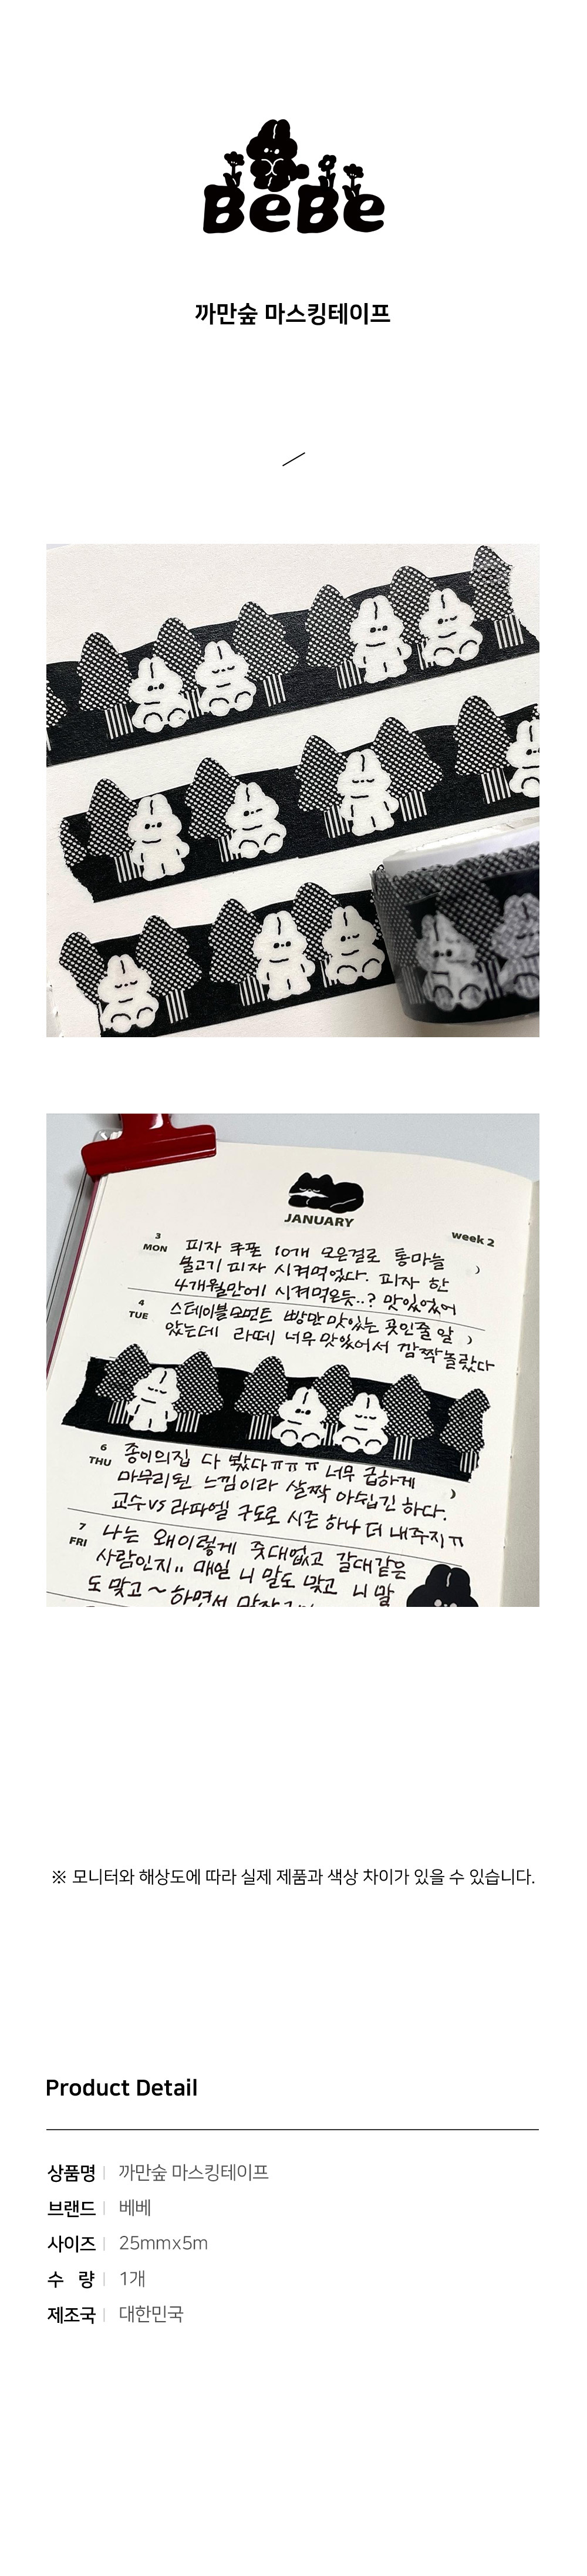 BeBe
까만숲 마스킹테이프
JANUARY
week 2
3
MON
피자 쿠폰 10개 모은걸로 통마늘
불고기 피자 시켜먹었다. 피자 한
4개월만에 시켜먹은듯..? 맛있었어
4
TUE
스테이블모먼트 빵만 맛있는 곳인줄 알
았는데 라떼 너무 맛있어서 깜짝놀랐다
6
THU
종이의집 다 봤다ㅠㅠㅠ 너무 급하게
마무리된 느낌이라 살짝 아쉽긴 하다.
교수vs라파엘 구도로 시즌 하나 더 내주지ㅠ
7
FRI
나는 왜이렇게 줏대없고 갈대같은
사람인지.. 매일 니 말도 맞고 니 말
도 맞고~ 하면서
※ 모니터와 해상도에 따라 실제 제품과 색상 차이가 있을 수 있습니다.
Product Detail
상품명 | 까만숲 마스킹테이프
브랜드 | 베베
사이즈 | 25mmx5m
수 량 | 1개
제조국 | 대한민국